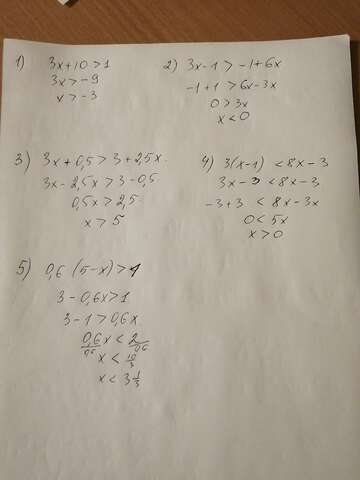 1) 3x+10>1
3x>-9
x>-3
2) 3x-1>-1+6x
-1+1>6x-3x
0>3x
x<0
3) 3x+0,5>3+2,5x
3x-2,5x>3-0,5
0,5x>2,5
x>5
4) 3(x-1) <8x-3
3x-3<8x-3
-3+3 <8x-3x
0<5x
x>0
5) 0,6 (5-x)>1
3-0,6x>1
3-1>0,6x
0,6x/0,6 < 2/0,6
x < 10/3
x < 3 1/3